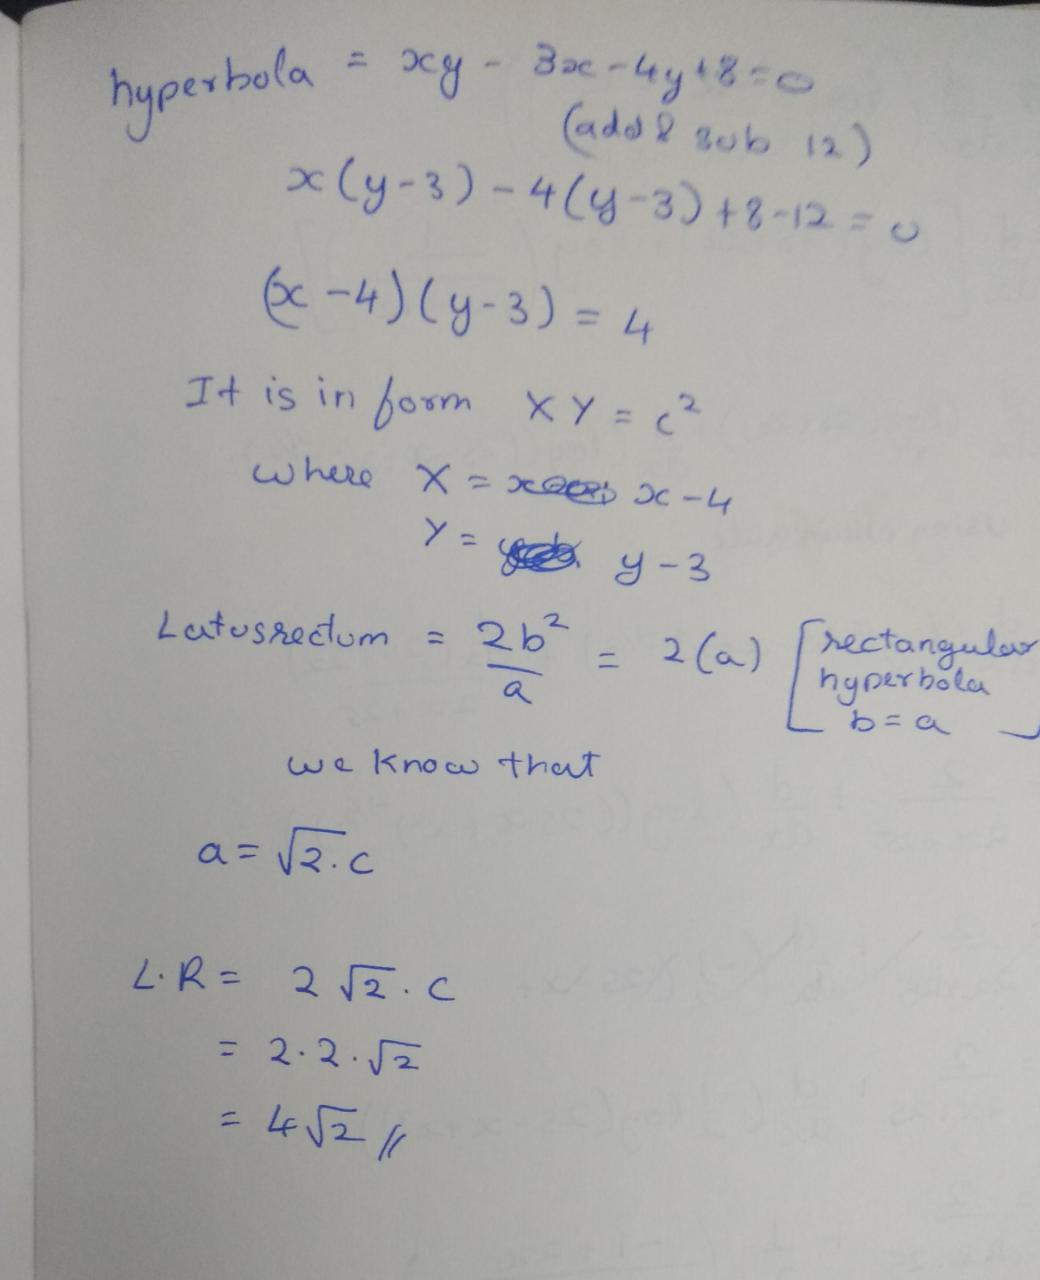 hyperbola = xy - 3x - 4y + 8 = 0
(add & sub 12)
x(y-3) - 4(y-3) + 8 - 12 = 0
(x-4)(y-3) = 4
It is in form XY = c²
where X = x-4
Y = y-3
Latusrectum = 2b²/a = 2(a) [rectangular
hyperbola
b=a]
we know that
a = √2.c
L.R = 2√2.c
= 2.2.√2
= 4√2 //